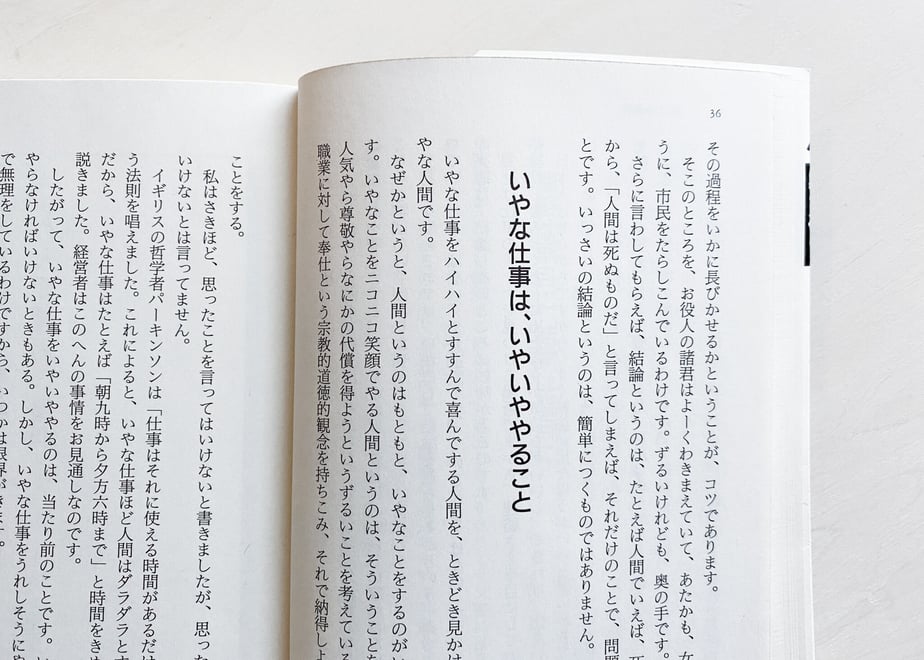 36
その過程をいかに長びかせるかということが、コツであります。
そこのところを、お役人の諸君はよーくわきまえていて、あたかも、女
うに、市民をたらしこんでいるわけです。ずるいけれども、奥の手です。
さらに言わしてもらえば、結論というのは、たとえば人間でいえば、死
から、「人間は死ぬものだ」と言ってしまえば、それだけのことで、問題
とです。いっさいの結論というのは、簡単につくものではありません。
いやな仕事は、いやいややること
いやな仕事をハイハイとすすんで喜んでする人間を、ときどき見かけ
やな人間です。
なぜかというと、人間というのはもともと、いやなことをするのがい
す。いやなことをニコニコ笑顔でやる人間というのは、そういうことを
人気やら尊敬やらなにかの代償を得ようというずるいことを考えている
職業に対して奉仕という宗教的道徳的観念を持ちこみ、それで納得しよ
ことをする。
私はさきほど、思ったことを言ってはいけないと書きましたが、思った
いけないとは言ってません。
イギリスの哲学者パーキンソンは「仕事はそれに使える時間があるだけ
う法則を唱えました。これによると、いやな仕事ほど人間はダラダラとす
だから、いやな仕事はたとえば「朝九時から夕方六時まで」と時間をきめ
説きました。経営者はこのへんの事情をお見通しなのです。
したがって、いやな仕事をいやいややるのは、当たり前のことです。い
やらなければいけないときもある。しかし、いやな仕事をうれしそうにや
で無理をしているわけですから、いつかは限界がきます。